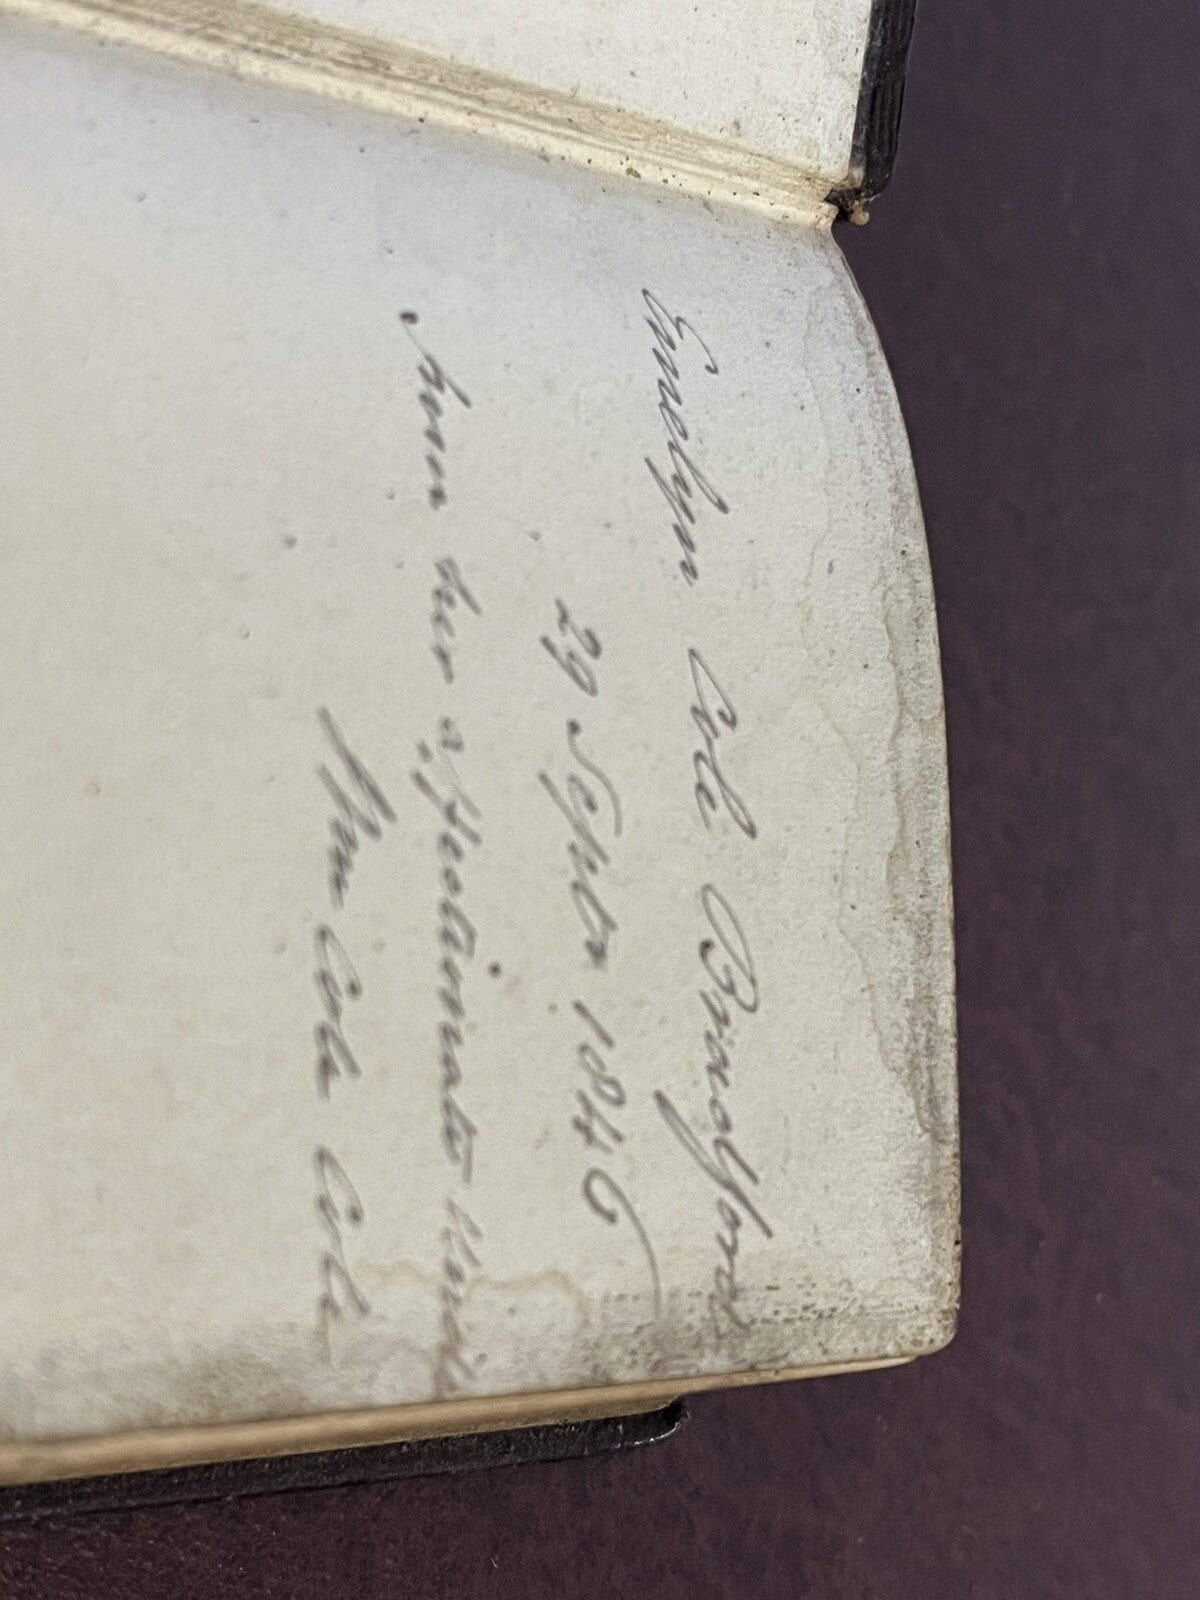 Emelyn Cole Bransford
29 Septbr 1846
from her affectionate Uncle
Wm Cole Cole